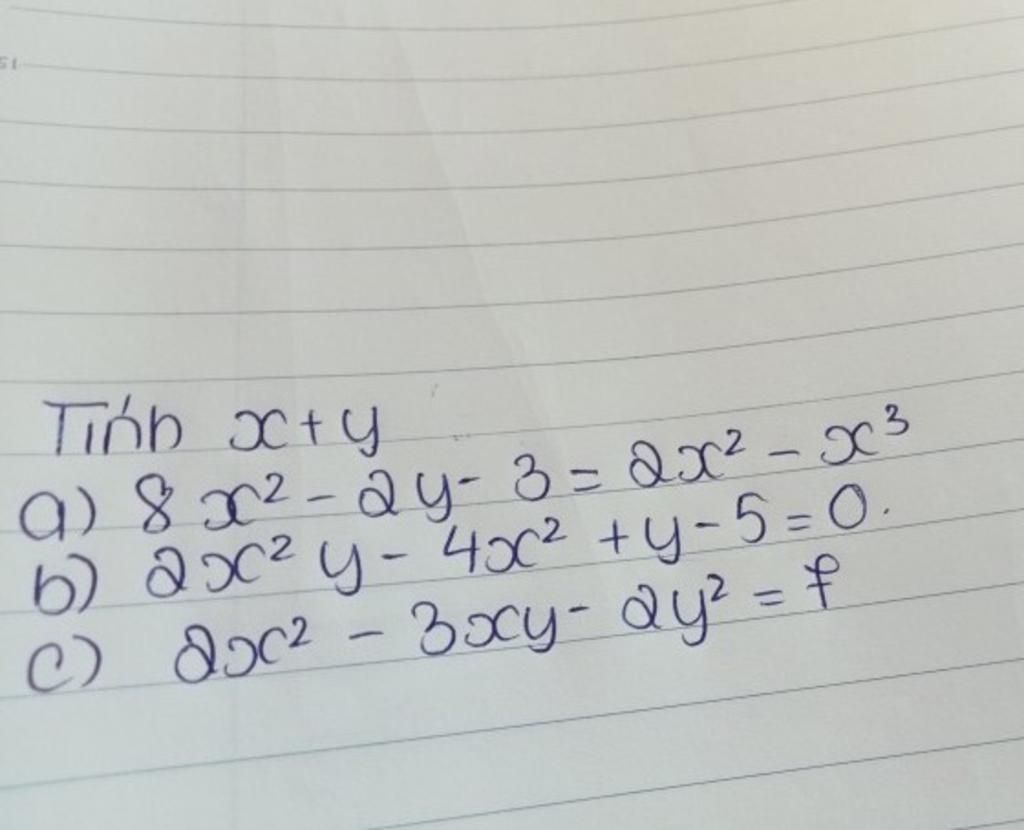 Tính x+y
a) 8x² - 2y - 3 = 2x² - x³
b) 2x²y - 4x² + y - 5 = 0.
c) 2x² - 3xy - 2y² = 7